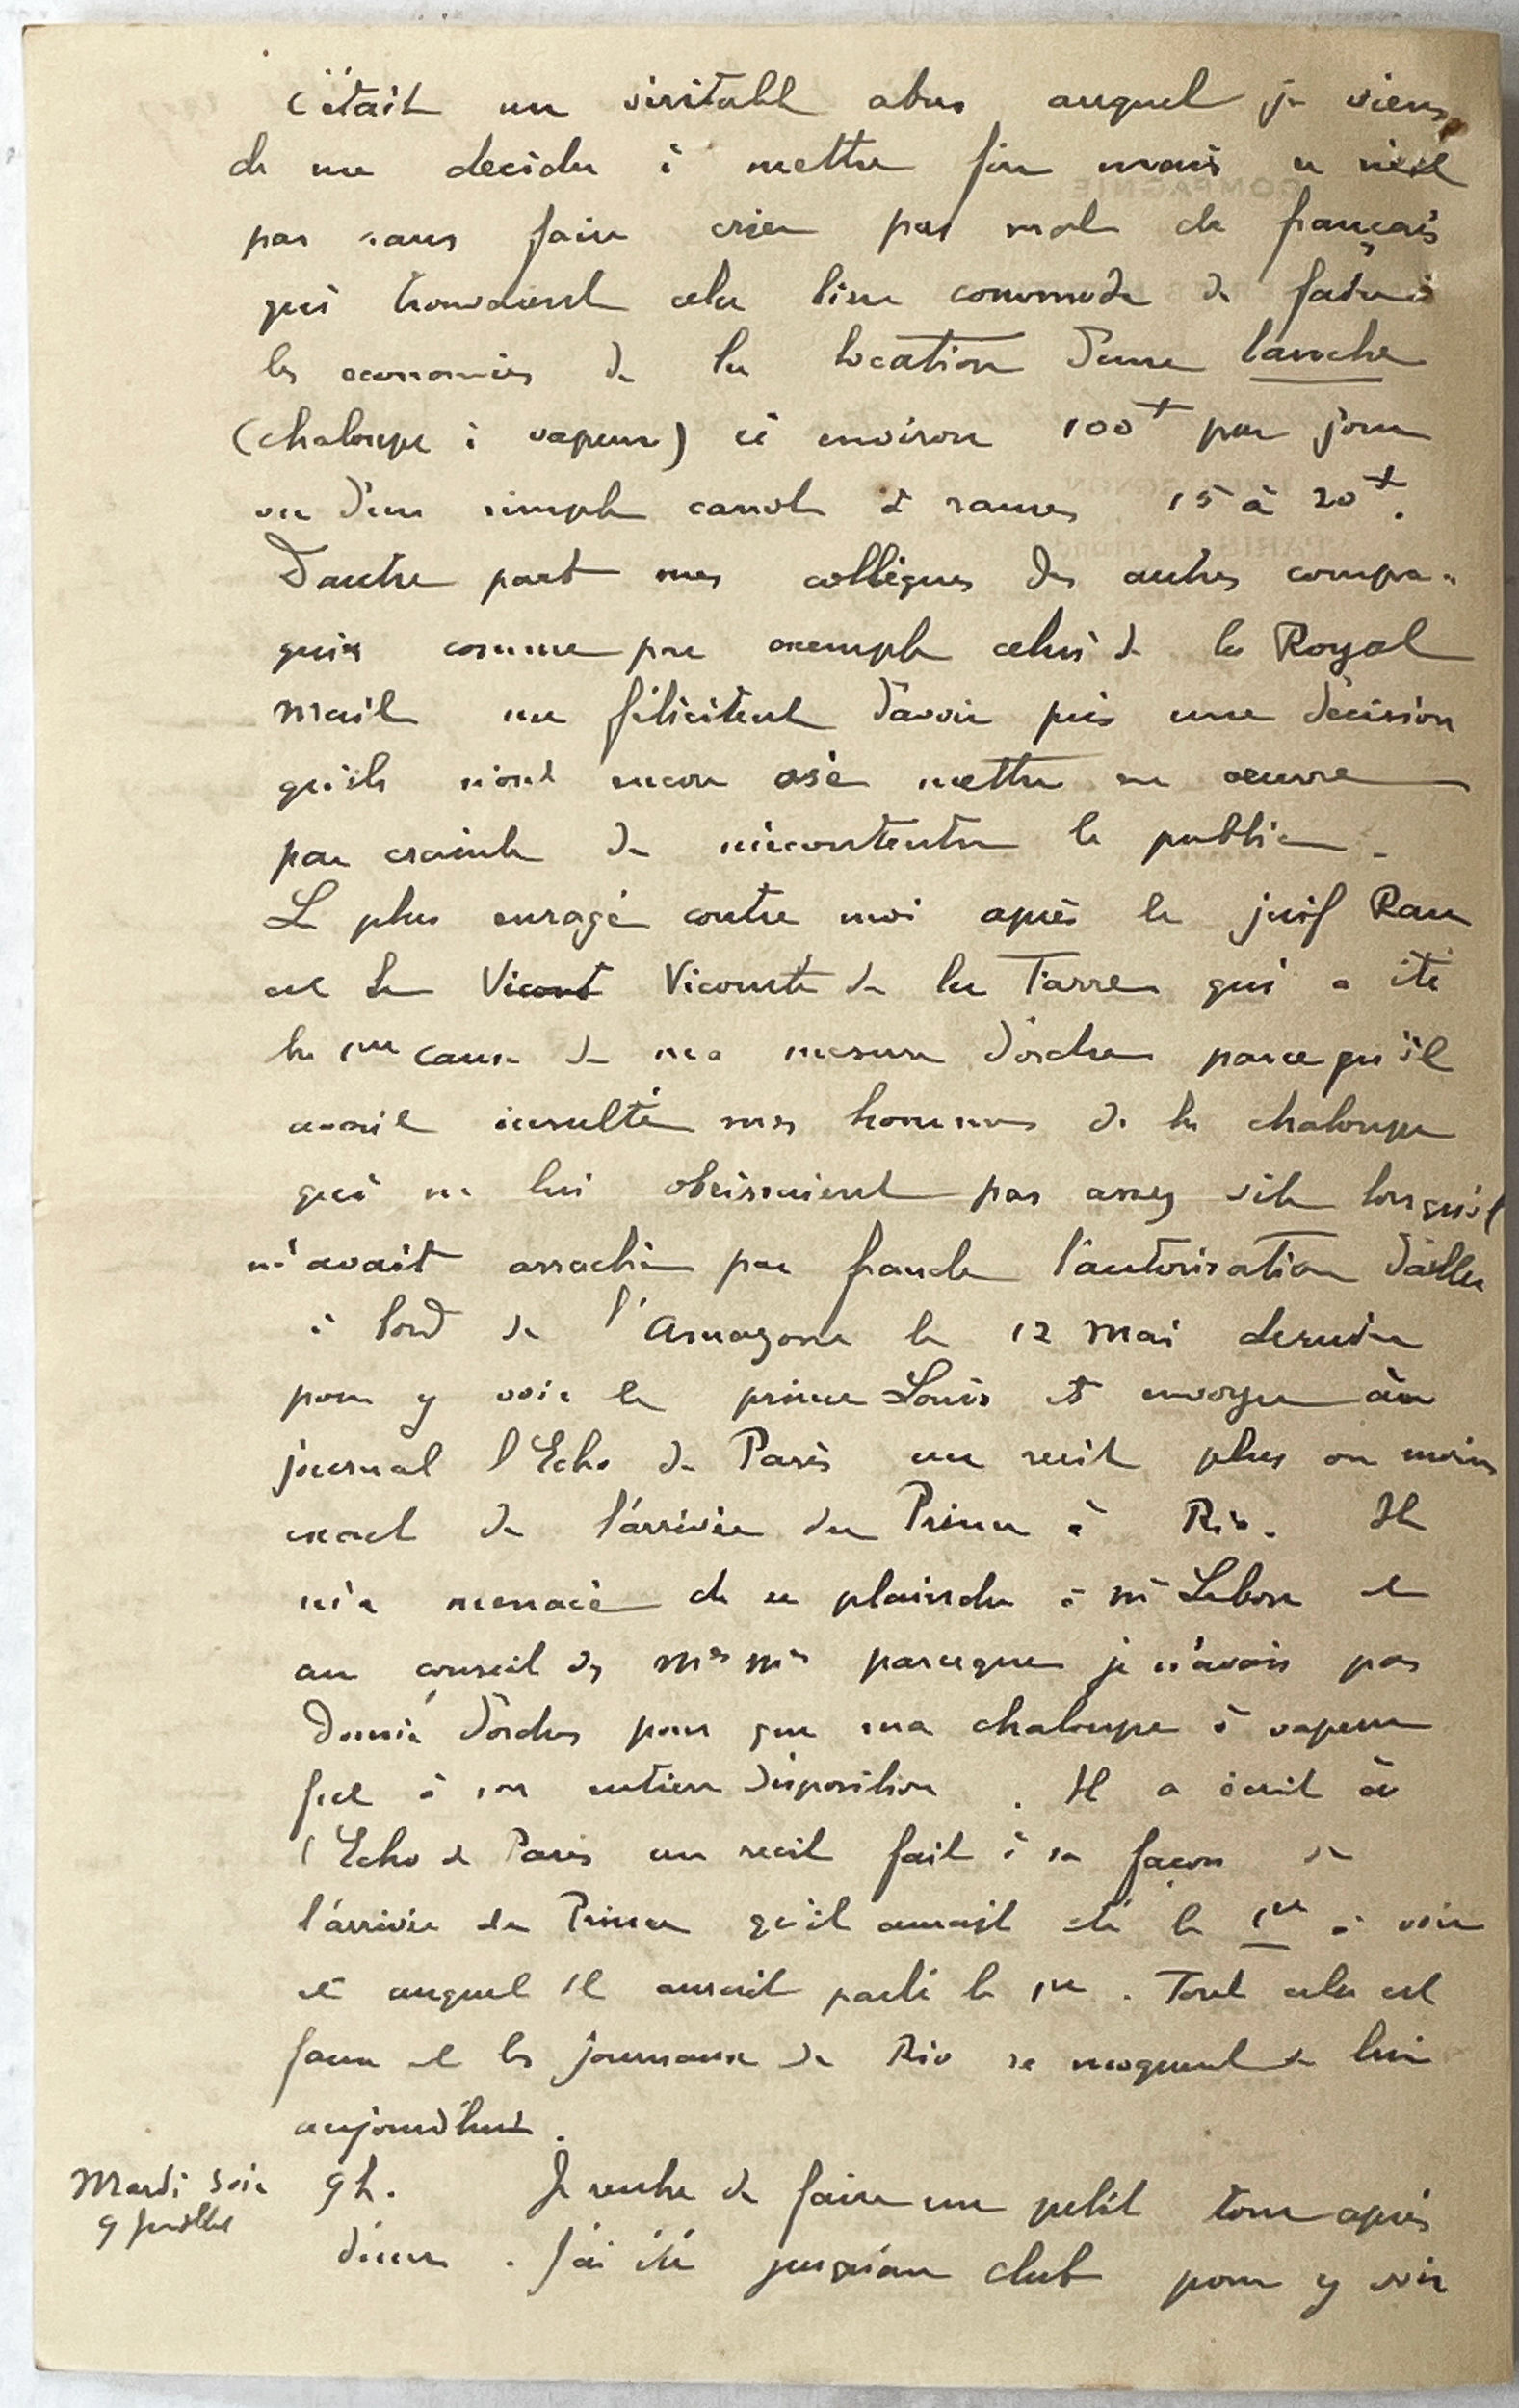 C'était un véritable abus auquel je viens
de me decider à mettre fin mais ce n'est
pas sans faire crier pas mal de français
qui trouvaient cela bien commode de faire
les economies de la location d'une lanche
(chaloupe à vapeur) ci environ 100f par jour
ou d'un simple canot à rames 15 à 20f.
D'autre part mes collègues des autres compa-
gnies comme par exemple celui de la Royal
Mail me félicitent d'avoir pris une décision
qu'ils n'ont encore osé mettre en œuvre
par crainte de mécontenter le public.
Le plus enragé contre moi après le juif Rau
est le Vicomte de la Tarre qui a été
la 1ère cause de ma mesure d'ordre parce qu'il
avait insulté mes hommes de la chaloupe
qui ne lui obéissaient pas assez vite lorsqu'il
m'avait arraché par fraude l'autorisation d'aller
à bord de l'Amazone le 12 Mai dernier
pour y voir le prince Louis et envoyer au
journal l'Echo de Paris un recit plus ou moins
exact de l'arrivée du Prince à Rio. Il
m'a menacé de se plaindre à Mr Lebon et
au conseil des Mes Mes parceque je n'avais pas
donné d'ordres pour que ma chaloupe à vapeur
fut à son entière disposition. Il a écrit à
l'Echo de Paris un recit fait à sa façon de
l'arrivée du Prince qu'il aurait été le 1er à voir
et auquel il aurait parlé le 1er. Tout cela est
faux et les journaux de Rio se moquent de lui
aujourd'hui.
Mardi soir 9h. Je rentre de faire un petit tour après
9 Juillet
diner. J'ai été jusqu'au club pour y voir